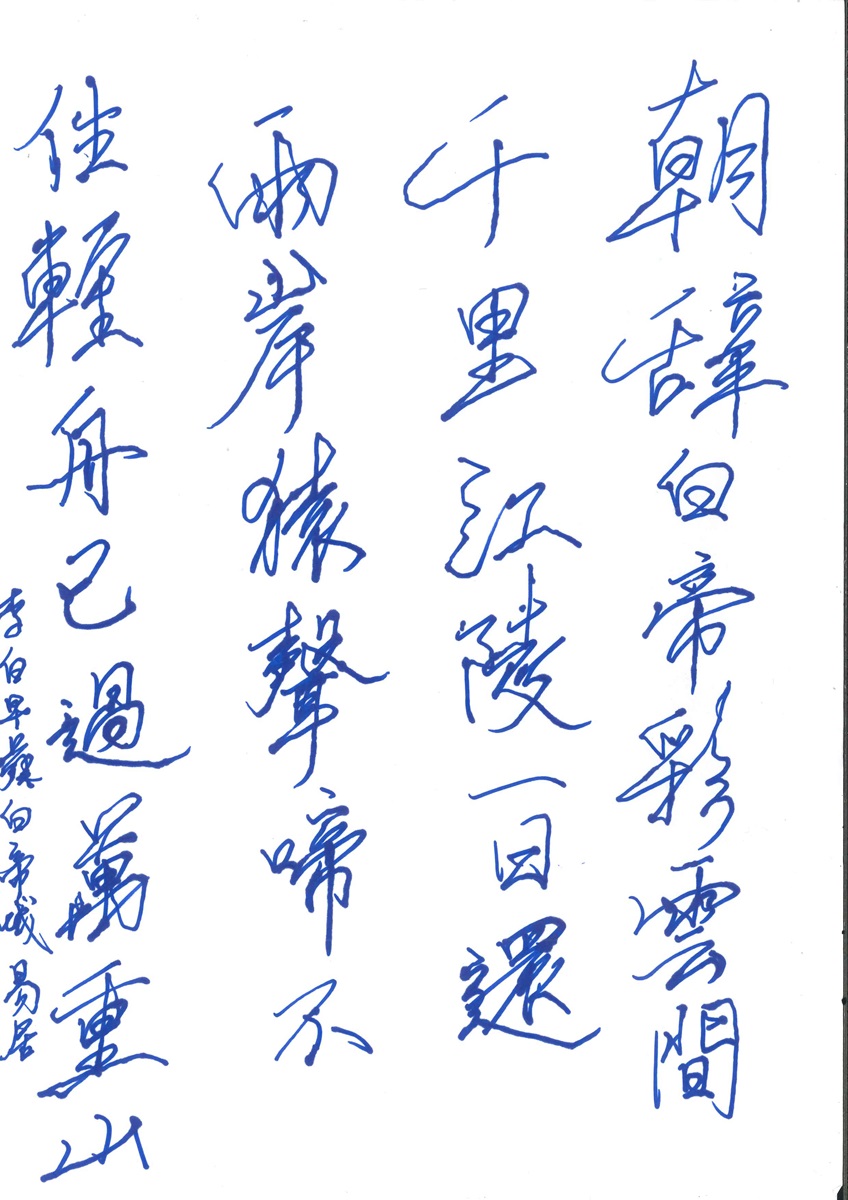 朝辭白帝彩雲間
千里江陵一日還
兩岸猿聲啼不
住輕舟已過萬重山
李白早發白帝城 易居